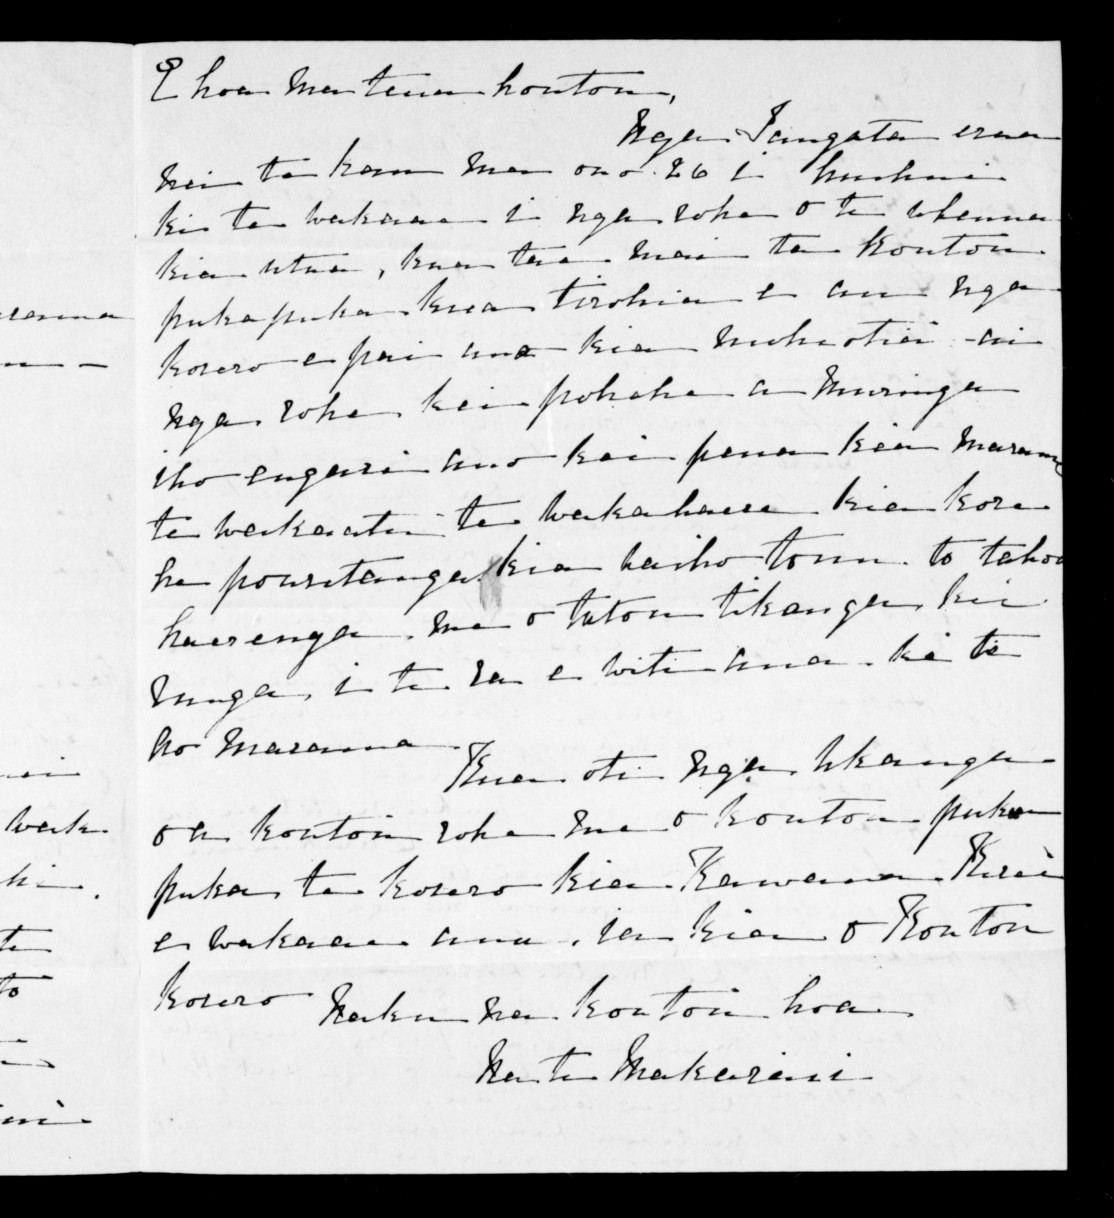 E hoa ma tena koutou,
Nga Tangata erua
nei te kau ma ono 26 i huihui
ki te wakaae i nga rohe o te whenua
kia utua, kua tae mai ta koutou
pukapuka kua tirohia e au nga
korero e pai ana kia mohiotia ai
nga rohe kei pohehe a muringa
iho engari ano kei pena kia marama
te wakaatu te wakahaere kia kore
he pouritanga kia waiho tonu to tatou
haerenga me o tatou tikanga ki
runga i te ra e witi ana ki te
ao marama.
Kua oti nga tikanga
o a koutou rohe me o koutou puka
puka te korero kia Kawana Kerei
e wakaae ana ia kia o Koutou
korero
Naku na koutou hoa
Na te Makarini
wak
to